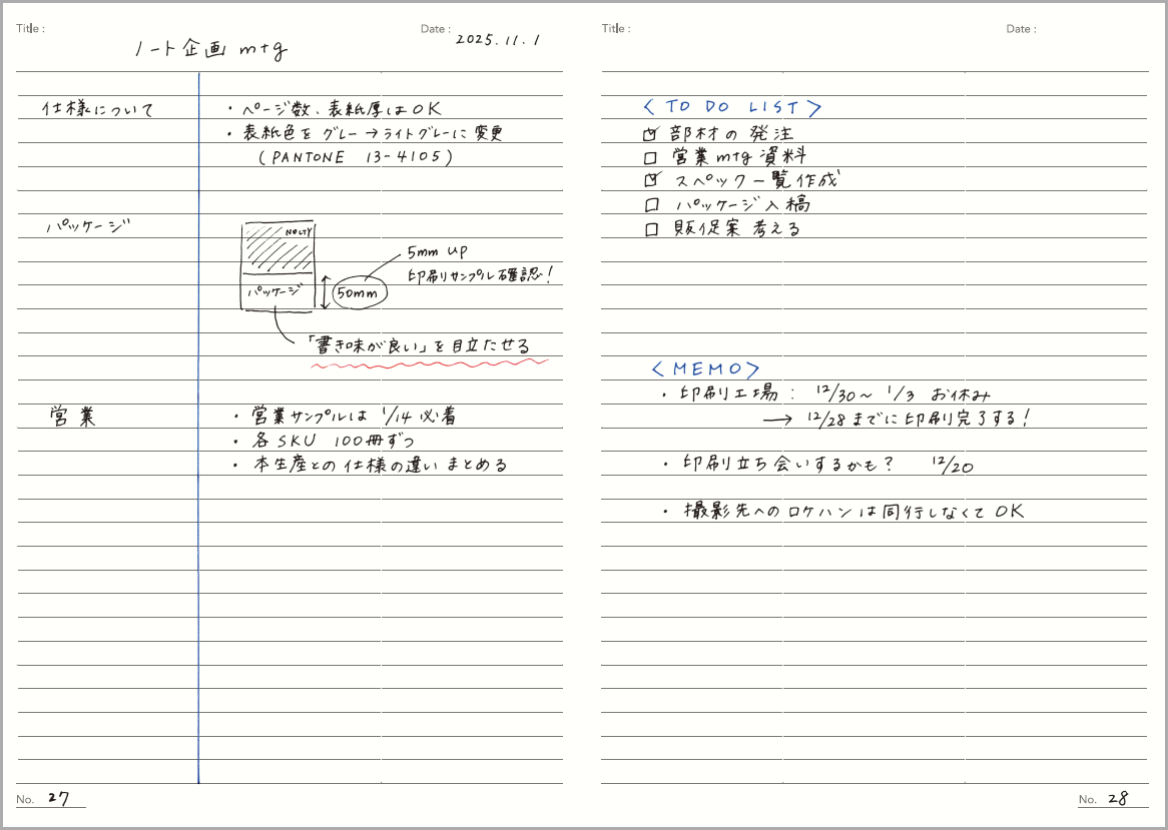 Title :
ノート企画 mtg
Date : 2025.11.1
仕様について
・ページ数、表紙厚はOK
・表紙色を グレー→ライトグレーに変更
(PANTONE 13-4105)
パッケージ
NOLTY
パッケージ
50mm
5mm UP
印刷サンプル確認!
「書き味が良い」を目立たせる
営業
・営業サンプルは 1/14 必着
・各SKU 100冊ずつ
・本生産との仕様の違いまとめる
No. 27
Title :
Date :
<TO DO LIST>
☑ 部材の発注
□ 営業mtg資料
☑ スペック一覧作成
□ パッケージ入稿
□ 販促案考える
<MEMO>
・印刷工場: 12/30〜1/3 お休み
→ 12/28までに印刷完了する!
・印刷立ち会いするかも? 12/20
・撮影先へのロケハンは同行しなくてOK
No. 28